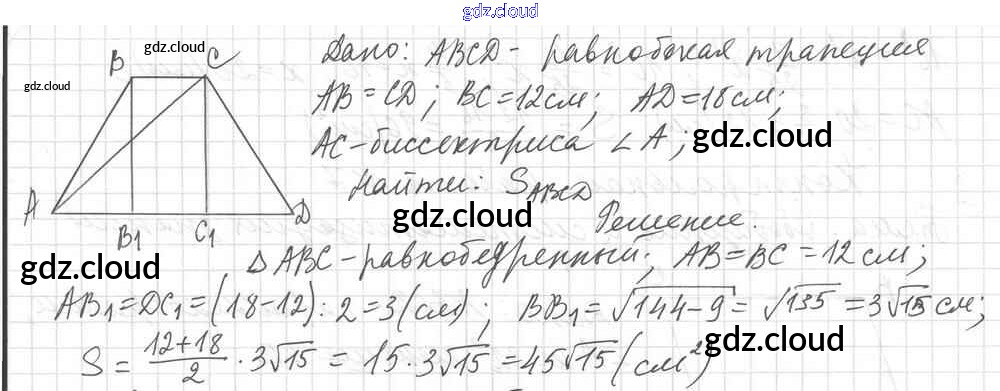 gdz.cloud
gdz.cloud
gdz.cloud
B C
A B₁ C₁ D
Дано: ABCD - равнобокая трапеция
AB = CD; BC = 12 см; AD = 18 см;
AC - биссектриса ∠A; gdz.cloud
Найти: S_ABCD
gdz.cloud Решение.
gdz.cloud
△ABC - равнобедренный; AB = BC = 12 см;
AB₁ = DC₁ = (18 - 12) : 2 = 3 (см); BB₁ = √(144 - 9) = √135 = 3√15 см;
S = (12 + 18)/2 · 3√15 = 15 · 3√15 = 45√15 (см²)
gdz.cloud